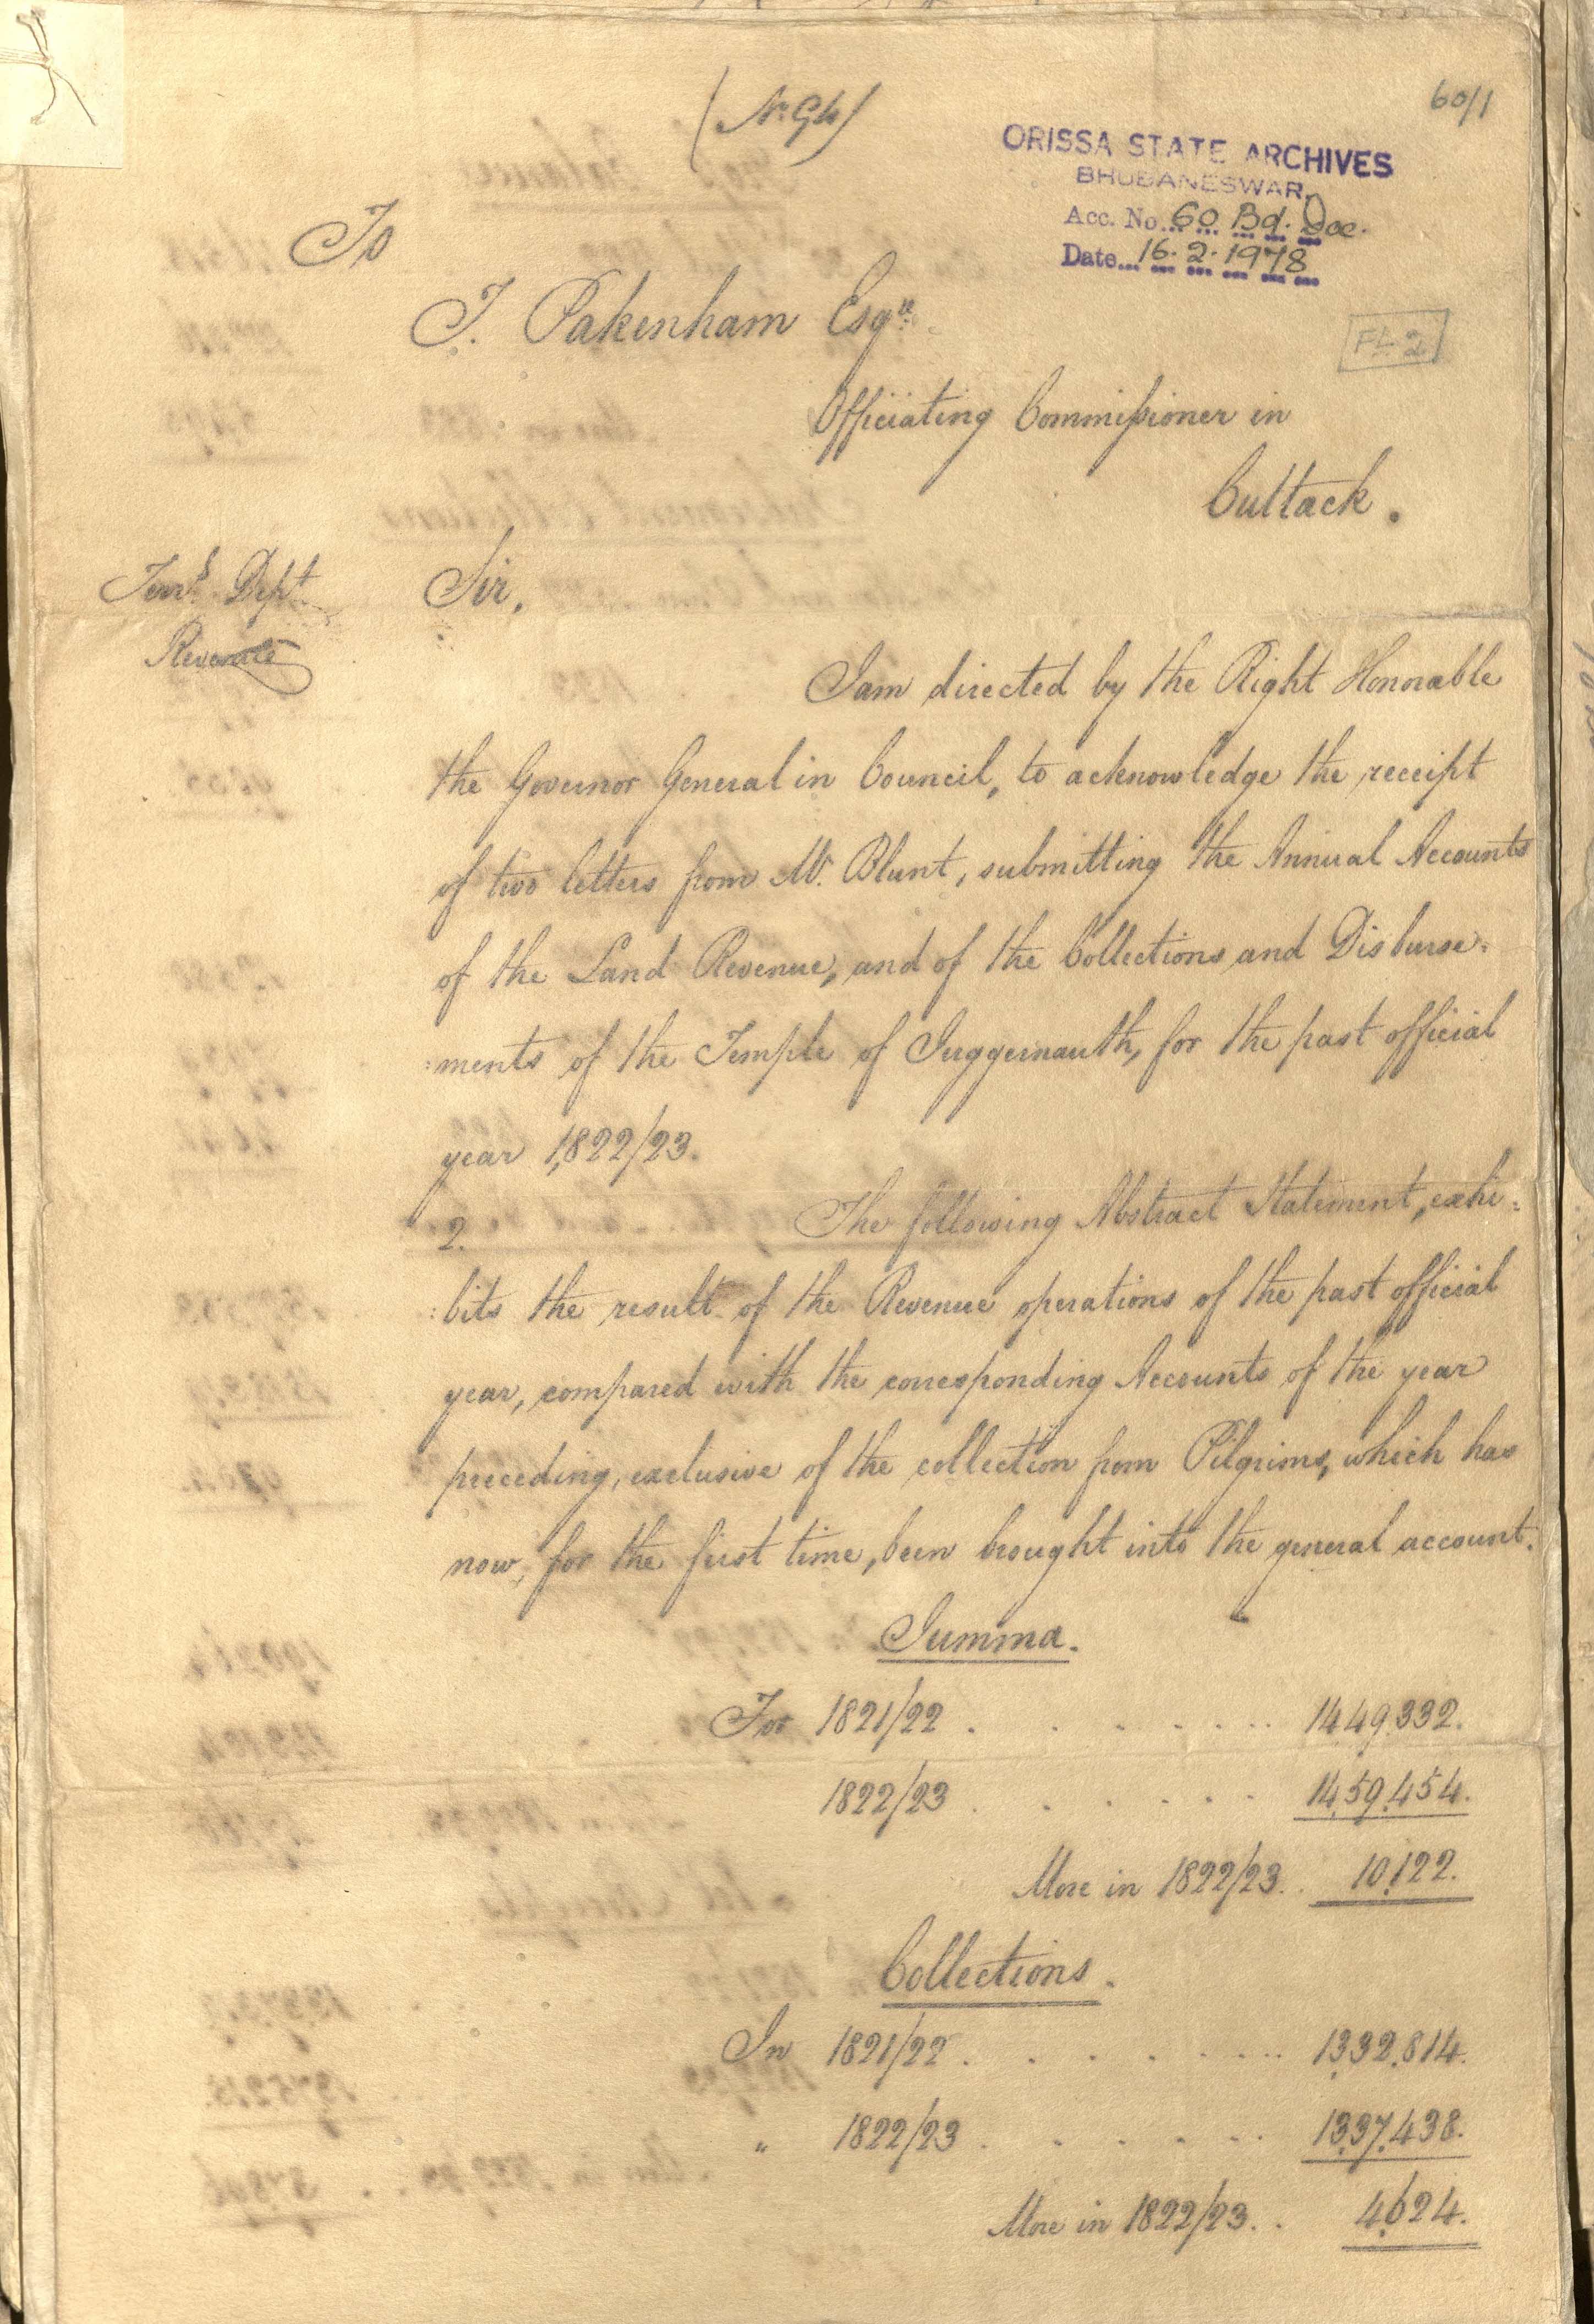 (No. 94)
60/1
ORISSA STATE ARCHIVES
BHUBANESWAR.
Acc. No. 60 Bd. Doc.
Date 16.2.1978
To
T. Pakenham Esqre.
FL 2
Officiating Commissioner in
Cuttack.
Terrl. Dept.
Revenue
Sir,
I am directed by the Right Honorable
the Governor General in Council, to acknowledge the receipt
of two letters from Mr. Blunt, submitting the Annual Accounts
of the Land Revenue, and of the Collections and Disburse=
=ments of the Temple of Juggernauth, for the past official
year 1822/23.
2. The following Abstract Statement, exhi=
=bits the result of the Revenue operations of the past official
year, compared with the corresponding Accounts of the year
preceding, exclusive of the collection from Pilgrims, which has
now, for the first time, been brought into the general account.
Jumma.
For 1821/22 . . . . . . . 14,49,332.
1822/23 . . . . . . 14,59,454.
More in 1822/23. . 10,122.
Collections.
In 1821/22 . . . . . . . 13,32,814.
" 1822/23 . . . . . . 13,37,438.
More in 1822/23. . 4,624.